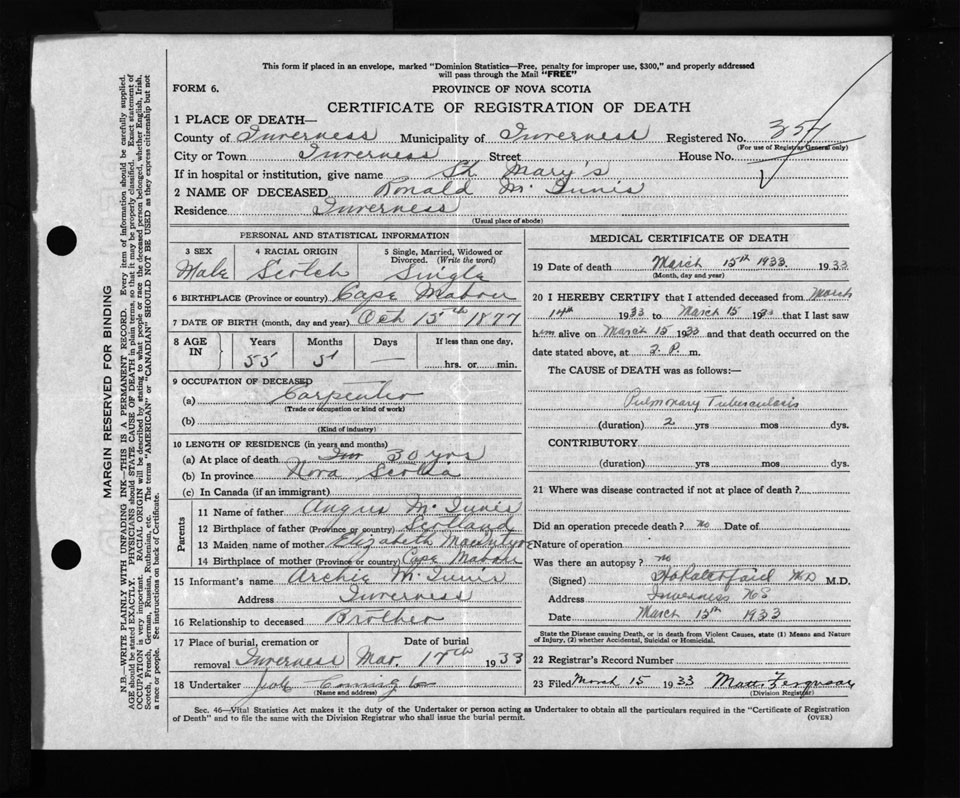 This form if placed in an envelope, marked "Dominion Statistics—Free, penalty for improper use, $300," and properly addressed
will pass through the Mail "FREE"
FORM 6.
PROVINCE OF NOVA SCOTIA
CERTIFICATE OF REGISTRATION OF DEATH
1 PLACE OF DEATH—
County of Inverness Municipality of Inverness Registered No. 354
(For use of Registrar General only)
City or Town Inverness Street House No.
If in hospital or institution, give name St Mary's
2 NAME OF DECEASED Ronald McInnis
Residence Inverness
(Usual place of abode)
PERSONAL AND STATISTICAL INFORMATION
3 SEX 4 RACIAL ORIGIN 5 Single, Married, Widowed or
Divorced. (Write the word)
Male Scotch Single
6 BIRTHPLACE (Province or country) Cape Mabou
7 DATE OF BIRTH (month, day and year) Oct 15th 1877
8 AGE IN Years Months Days If less than one day,
55 5 — hrs. or min.
9 OCCUPATION OF DECEASED
(a) Carpenter
(Trade or occupation or kind of work)
(b)
(Kind of industry)
10 LENGTH OF RESIDENCE (in years and months)
(a) At place of death 30 yrs
(b) In province Nova Scotia
(c) In Canada (if an immigrant)
Parents
11 Name of father Angus McInnis
12 Birthplace of father (Province or country) Scotland
13 Maiden name of mother Elizabeth Macintyre
14 Birthplace of mother (Province or country) Cape Mabou
15 Informant's name Archie McInnis
Address Inverness
16 Relationship to deceased Brother
17 Place of burial, cremation or Date of burial
removal Inverness Mar. 17th 1933
18 Undertaker
(Name and address)
MEDICAL CERTIFICATE OF DEATH
19 Date of death March 15th 1933 1933
(Month, day and year)
20 I HEREBY CERTIFY that I attended deceased from March
14th 1933 to March 15 1933 that I last saw
him alive on March 15 1933 and that death occurred on the
date stated above, at 2. P. m.
The CAUSE of DEATH was as follows:—
Pulmonary Tuberculosis
(duration) 2 yrs mos dys.
CONTRIBUTORY
(duration) yrs mos dys.
21 Where was disease contracted if not at place of death?
Did an operation precede death? no Date of
Nature of operation
Was there an autopsy? no
(Signed) M.D M.D.
Address Inverness N.S
Date March 15th 1933
State the Disease causing Death, or in death from Violent Causes, state (1) Means and Nature
of Injury, (2) whether Accidental, Suicidal or Homicidal.
22 Registrar's Record Number
23 Filed March 15 1933 Matt. Ferguson
(Division Registrar)
Sec. 46—Vital Statistics Act makes it the duty of the Undertaker or person acting as Undertaker to obtain all the particulars required in the "Certificate of Registration
of Death" and to file the same with the Division Registrar who shall issue the burial permit.
(OVER)
MARGIN RESERVED FOR BINDING
N.B.—WRITE PLAINLY WITH UNFADING INK—THIS IS A PERMANENT RECORD. Every item of information should be carefully supplied.
AGE should be stated EXACTLY. PHYSICIANS should STATE CAUSE OF DEATH in plain terms, so that it may be properly classified. Exact statement of
OCCUPATION is very important. RACIAL ORIGIN will be described by stating to what people or race the deceased person belonged, whether English, Irish,
Scotch, French, German, Russian, Ruthenian, etc. The terms "AMERICAN" or "CANADIAN" SHOULD NOT BE USED as they express citizenship but not
a race or people. See instructions on back of Certificate.